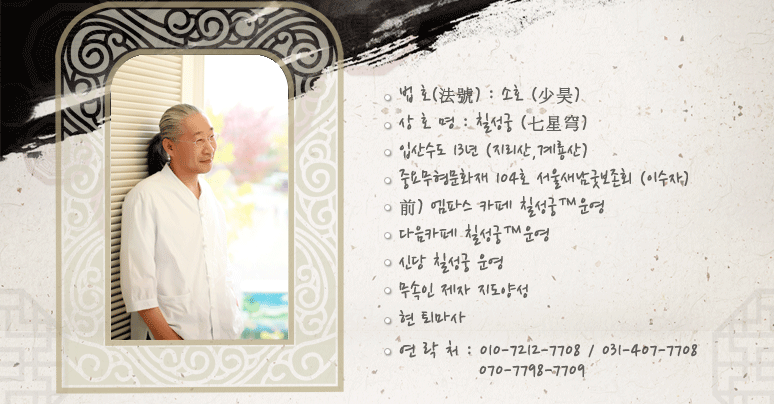 법 호(法號) : 소호 (少昊)
상 호 명 : 칠성궁 (七星穹)
입산수도 13년 (지리산,계룡산)
중요무형문화재 104호 서울새남굿보존회 (이수자)
前) 엠파스 카페 칠성궁™운영
다음카페 칠성궁™운영
신당 칠성궁 운영
무속인 제자 지도양성
현 퇴마사
연 락 처 : 010-7212-7708 / 031-407-7708
070-7798-7709